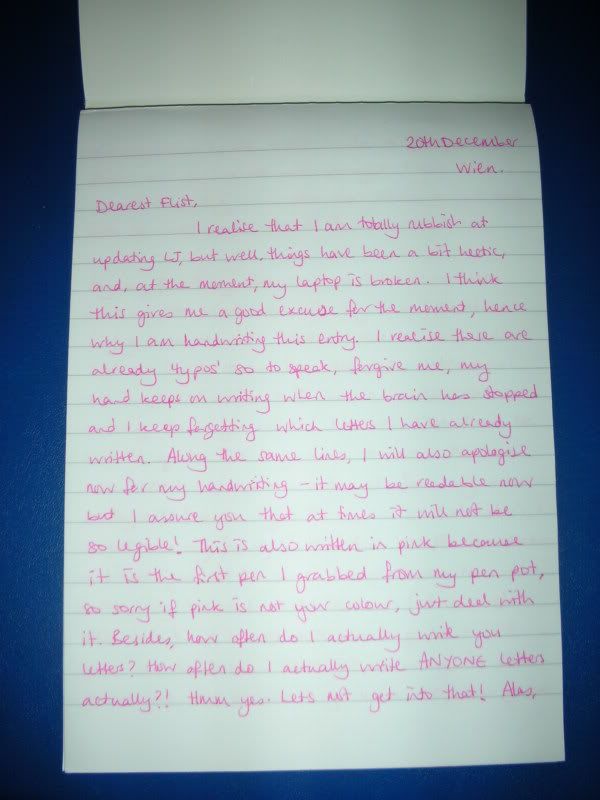 20th December
Wien.
Dearest Flist,
I realise that I am totally rubbish at
updating LJ, but well, things have been a bit hectic,
and, at the moment, my laptop is broken. I think
this gives me a good excuse for the moment, hence
why I am handwriting this entry. I realise there are
already 'typos' so to speak, forgive me, my
hand keeps on writing when the brain has stopped
and I keep forgetting which letters I have already
written. Along the same lines, I will also apologise
now for my handwriting - it may be readable now
but I assure you that at times it will not be
so legible! This is also written in pink because
it is the first pen I grabbed from my pen pot,
so sorry if pink is not your colour, just deal with
it. Besides, how often do I actually write you
letters? How often do I actually write ANYONE letters
actually?! Hmm yes. Lets not get into that! Alas,